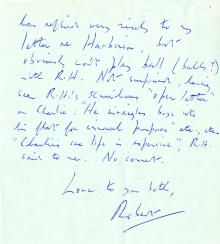 has replied very nicely to my
letter re Harbinson, but
obviously won't play ball (balls?)
with R.H. Not surprised, having
see R.H.'s scurrilous "open letter"
to Charlie: "He inveigles boys into
his flat for immoral purposes" etc, etc.
"Charlie's sex life is expensive", R.H.
said to me. No comment.
Love to you both,
Robert